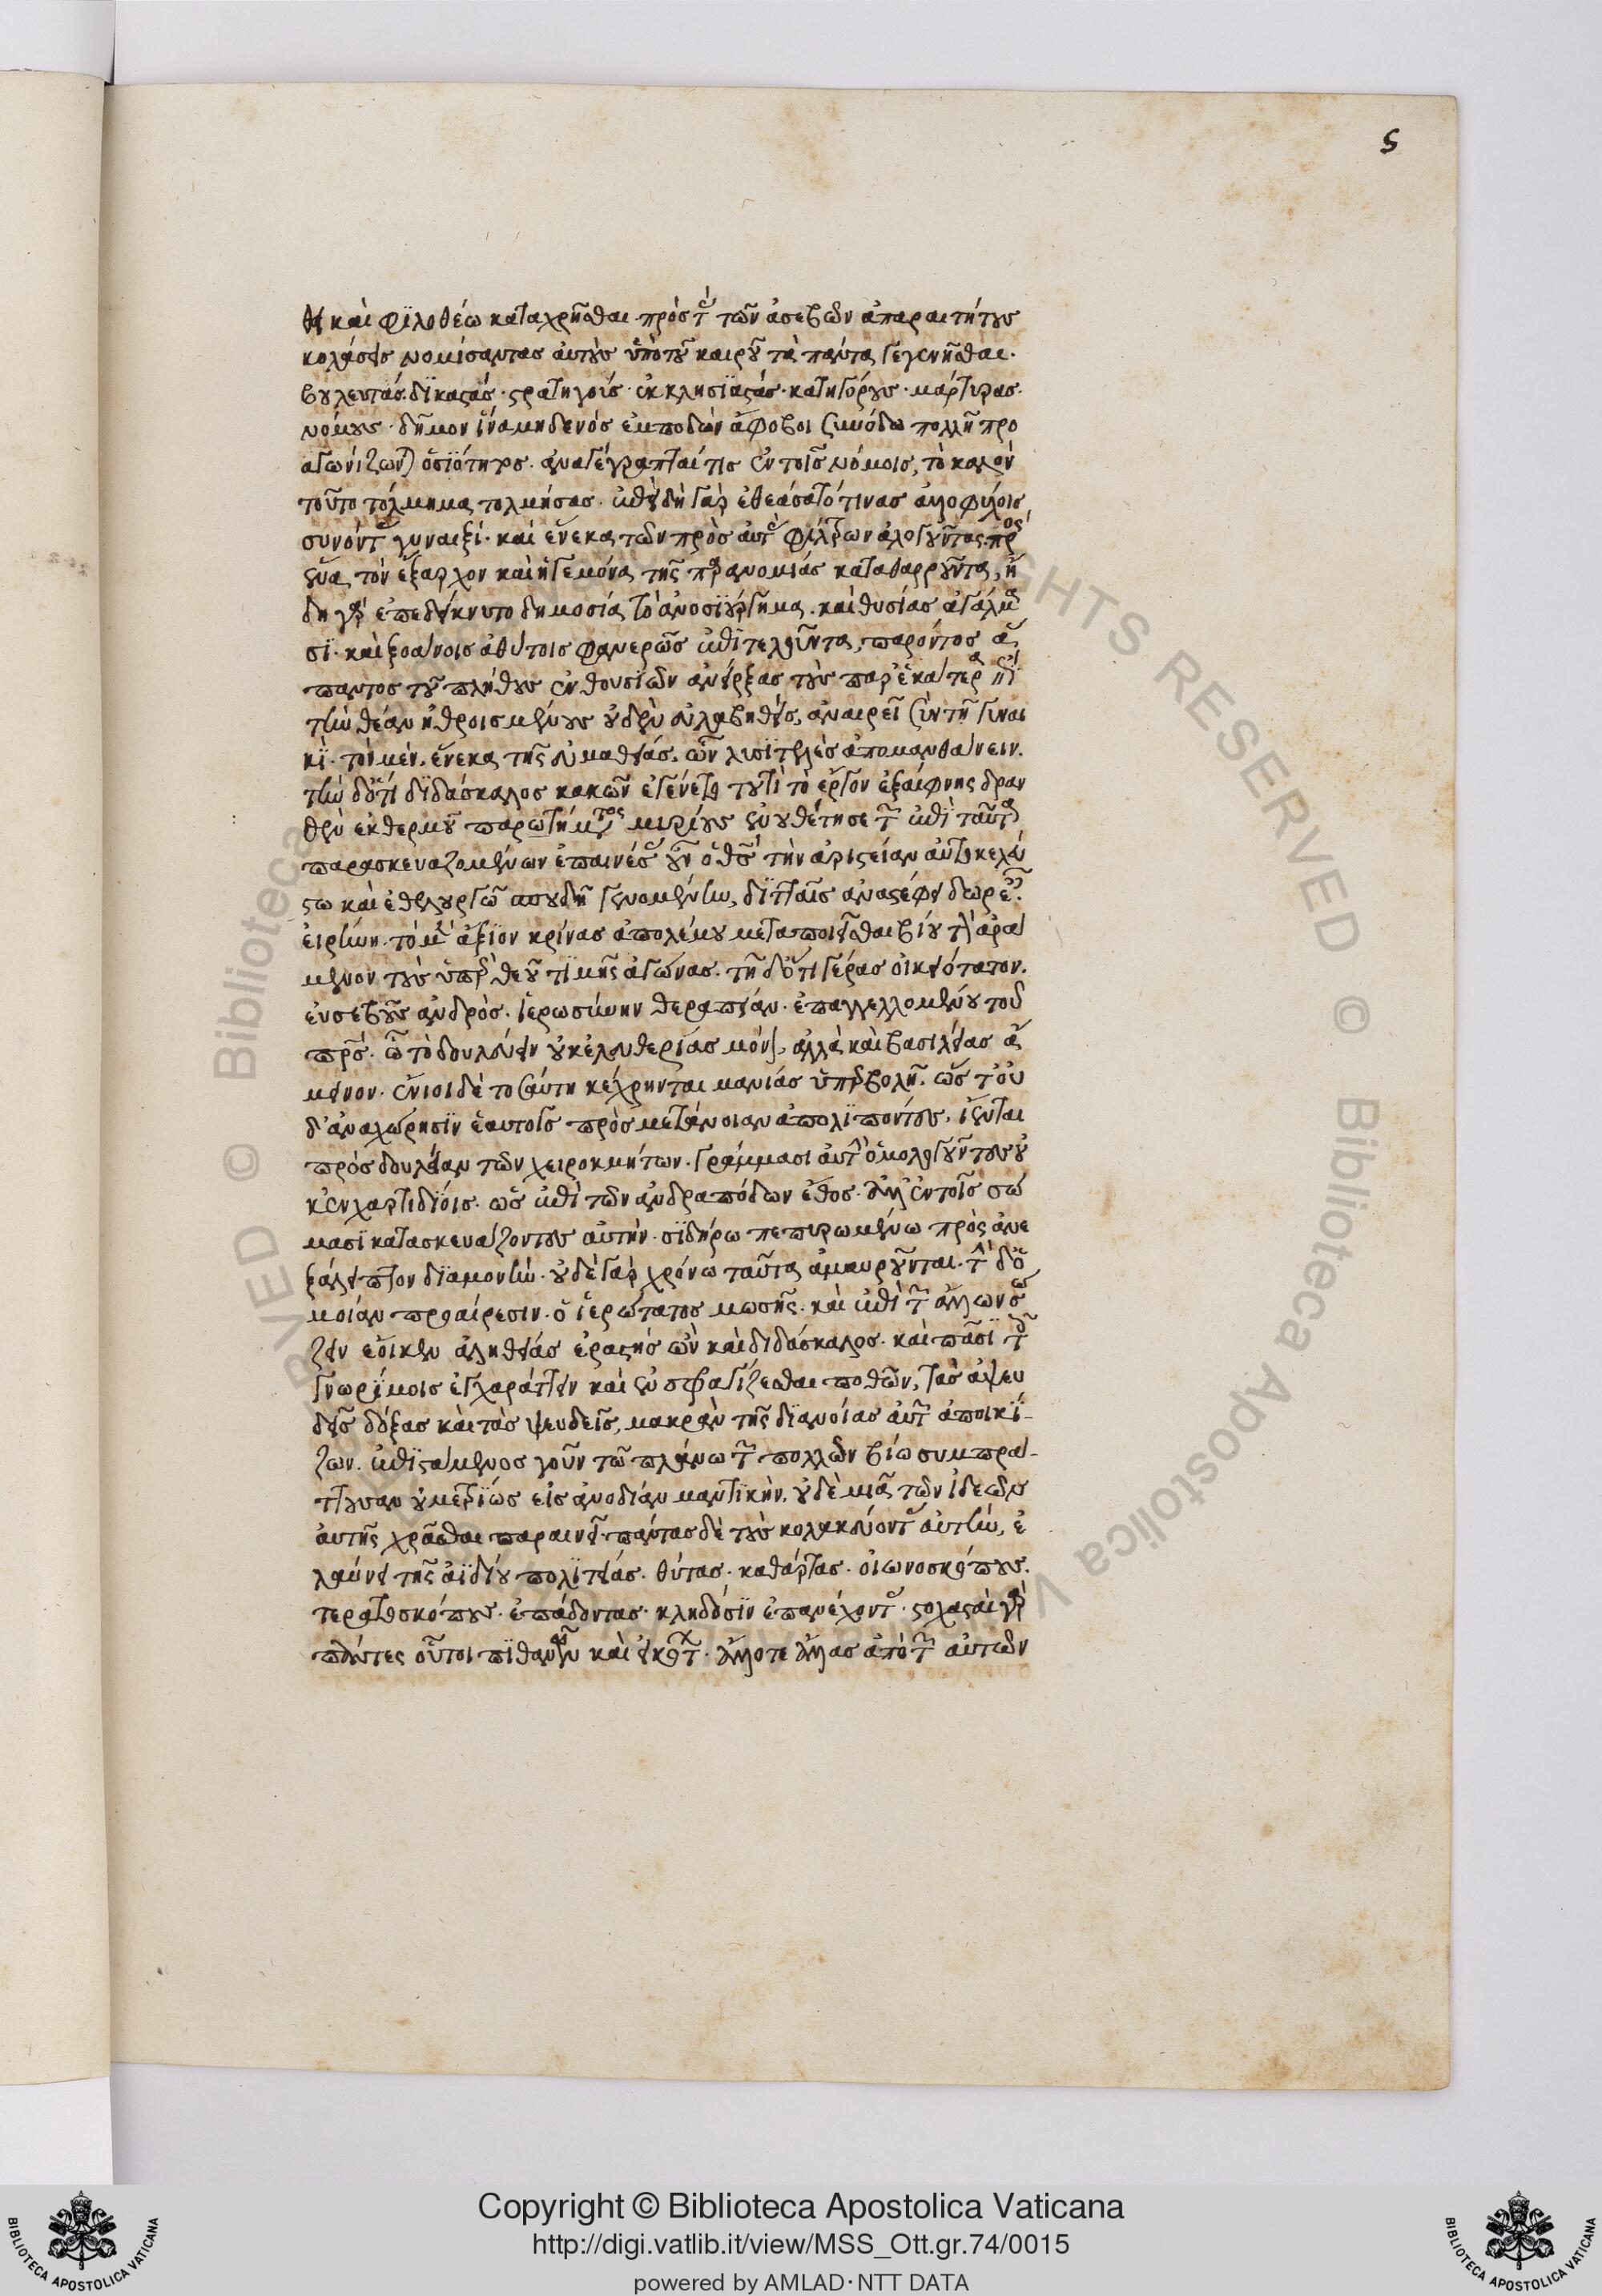 ϛ
θει καὶ φϊλοθέω καταχρῆσθαι πρὸς τ τῶν ἀσεβῶν ἀπαραιτήτους
κολάσεις νομίσαντας αὐτοὺς ὑπὸ τοῦ καιροῦ τὰ πάντα γεγενῆσθαι·
βουλευτάς· δϊκαστάς· στρατηγούς· ἐκκλησϊαστάς· κατηγόρους· μάρτυρας·
νόμους· δῆμον ἵνα μηδενὸς ἐμποδὼν ἄφοβοι ξυνόδω πολλῆ προ
αγωνίζωνται ὁσϊότητος· ἀναγέγραπταί τις ἐν τοῖς νόμοις, τὸ καλὸν
τοῦτο τόλμημα τολμήσας· ἐπειδὴ γὰρ ἐθεάσατό τινας ἀλλοφύλοις
συνόντ γυναιξί· καὶ ἕνεκα τῶν πρὸς αὐτ φίλτρων ἀλογοῦντας πρ
ἕνα τὸν ἔξαρχον καὶ ἡγεμόνα τῆς παρανομίας καταθαρροῦντα, ἤ
δη γὰρ ἐπεδείκνυτο δημοσία τὸ ἀνοσϊούργημα· καὶ θυσίας ἀγάλμα
σϊ· καὶ ξοάνοις ἀθύτοις φανερῶς ἐπιτελοῦντα, παρόντος ἅ
παντος τοῦ πλήθους ἐνθουσϊῶν ἀνείρξας τοὺς παρ' ἑκάτερα ἐπὶ
τὴν θέαν ἠθροισμένους οὐδὲν εὐλαβηθείς, ἀναιρεῖ σὺν τῆ γυναι
κϊ· τὸν μὲν, ἕνεκα τῆς εὐμαθείας, ὧν λυσϊτελὲς ἀπομανθάνειν·
τὴν δ' ὅτι δϊδάσκαλος κακῶν ἐγένετο τουτὶ τὸ ἔργον ἐξαίφνης δρασ
θὲν ἐκ θερμοῦ παρ
παρασκευαζομένων ἐπαινέσ οὖν ὁ θς τὴν ἀριστείαν αὐτοκελεύ
στω καὶ ἐθελουργῶ σπουδῆ γενομένην, διτταῖς ἀναστέφει δωρε
εἰρήνη· τὸ μὲν ἄξϊον κρίνας ἀπολέμου μεταποιεῖσθαι βίου τὸν ἀρά
μενον τοὺς ὑπὲρ θεοῦ τϊμῆς ἀγῶνας· τῆ δ' ὅτι γέρας οἰκειότατον·
εὐσεβοῦς ἀνδρὸς· ἱερωσύνην θεραπείαν· ἐπαγγελλομένου τοῦ
πρς· ὧ τὸ δουλεύειν οὐκ ἐλευθερίας μόνον, ἀλλὰ καὶ βασιλείας ἄ
μεινον· ἔνιοι δὲ τοσαύτη κέχρηνται μανίας ὑπερβολῆ· ὥστ' οὐ
δ' ἀναχώρησϊν ἑαυτοῖς πρὸς μετάνοιαν ἀπολϊπόντες, ἵενται
πρὸς δουλείαν τῶν χειροκμήτων· γράμμασι αὐτὴν ὁμολογοῦντες οὐ
κ ἐν χαρτιδϊοις· ὡς ἐπὶ τῶν ἀνδραπόδων ἔθος· ἀλλ' ἐν τοῖς σώ
μασϊ κατασκευάζοντες αὐτὴν· σϊδήρω πεπυρωμένω πρὸς ἀνε
ξάλειπτον δϊαμονήν· οὐδὲ γὰρ χρόνω ταῦτα ἀμαυροῦνται· τὴν δ' ὁ
μοίαν προαίρεσιν· ὁ ἱερώτατος μωσῆς· καὶ ἐπὶ τ ἄλλων σώ
ζειν ἔοικεν ἀληθείας ἐραστὴς ὢν καὶ διδάσκαλος· καὶ πᾶσϊ τ
γνωρίμοις ἐγχαράττειν καὶ ἐνσφραγίζεσθαι ποθῶν, τὰς ἀψευ
δεῖς δόξας καὶ τὰς ψευδεῖς, μακρὰν τῆς δϊανοίας αὐτ ἀποικί-
ζων· ἐπϊστάμενος γοῦν τῶ πλάνω τ πολλῶν βίω συμπρά-
ττουσαν οὐ μετρίως εἰς ἀνοδίαν μαντϊκὴν, οὐδὲ μιᾶ τῶν ἰδεῶν
αὐτῆς χρᾶσθαι παραινεῖ· πάντας δὲ τοὺς κολακεύοντ αὐτὴν, ἐ
λαύνει τῆς ἀϊδίου πολϊτείας· θύτας· καθάρτας· οἰωνοσκόπους·
τερατοσκόπους· ἐπάδοντας· κληδόσϊν ἐπανέχοντ· στοχασταὶ γὰρ
πάντες οὗτοι πϊθανῶν καὶ εἰκότ· ἄλλοτε ἄλλας ἀπὸ τ αὐτῶν
Copyright © Biblioteca Apostolica Vaticana
http://digi.vatlib.it/view/MSS_Ott.gr.74/0015
powered by AMLAD·NTT DATA